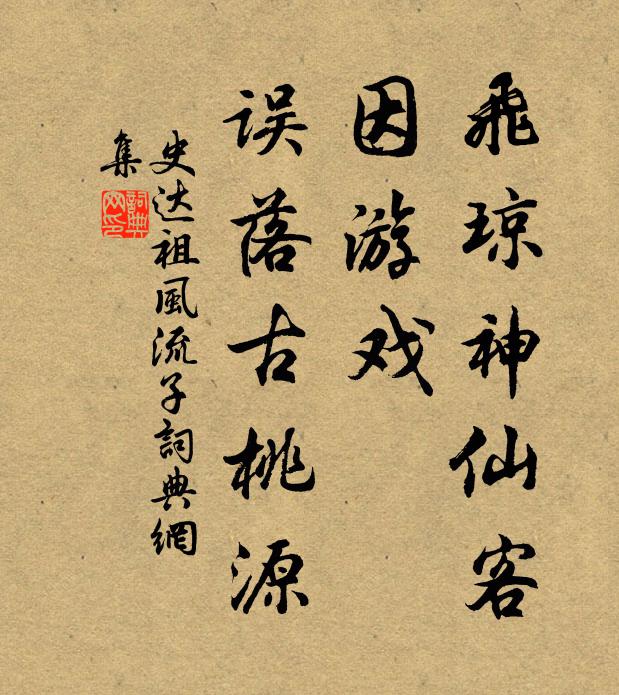 飛琼神仙客
因游戏
误落古桃源
史达祖風流子詞典網
集
詞典網印